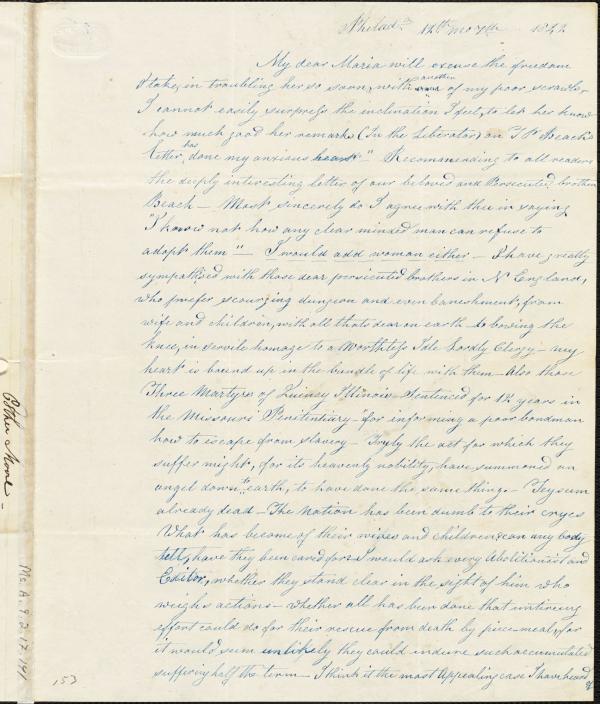 Philad. 12th mo 7th 1842
My dear Maria will excuse the freedom
I take, in troubling her so soon, with another of my poor scrawls,
I cannot easily surpress the inclination I feel, to let her know
how much good her remarks (In the Liberator) on T P Beach's
letter, has done my anxious heart" Recomending to all readers
the deeply interesting letter of our beloved and Persecuted brother
Beach – Most sincerely do I agree with thee in saying
"I know not how any clear minded man can refuse to
adopt them" – I would add woman either – I have greatly
sympathised with those dear persicuted brothers in N England,
who prefer scourging dungeon and even banishment, from
wife and children, with all thats dear on earth – to bowing the
knee, in servile homage to a Worthless Idle Lordly Clergy – my
heart is bound up in the bundle of life with them – Also those
Three Martyrs of Quincy Illinois – Sentenced for 12 years in
the Missouri Penitentiary – for informing a poor bondman
how to escape from slavery – Truly the act for which they
suffer might, for its heavenly nobility, have summoned an
angel down to earth, to have done the same thing –
already dead – The Nation has been dumb to their cryes
What has become of their wives and children, can any body
tell, have they been cared for – I would ask every Abolitionist and
Editor, whether they stand clear in the sight of him who
weighs actions – whether all has been done that untireing
effort could do for their rescue from death by piece-meal, for
it would seem unlikely they could indure such accumulated
suffering half the term – I think it the most Appealing case I have heard
of
Esther Moore –
Ms. A. 9. 2. 17. 141
153